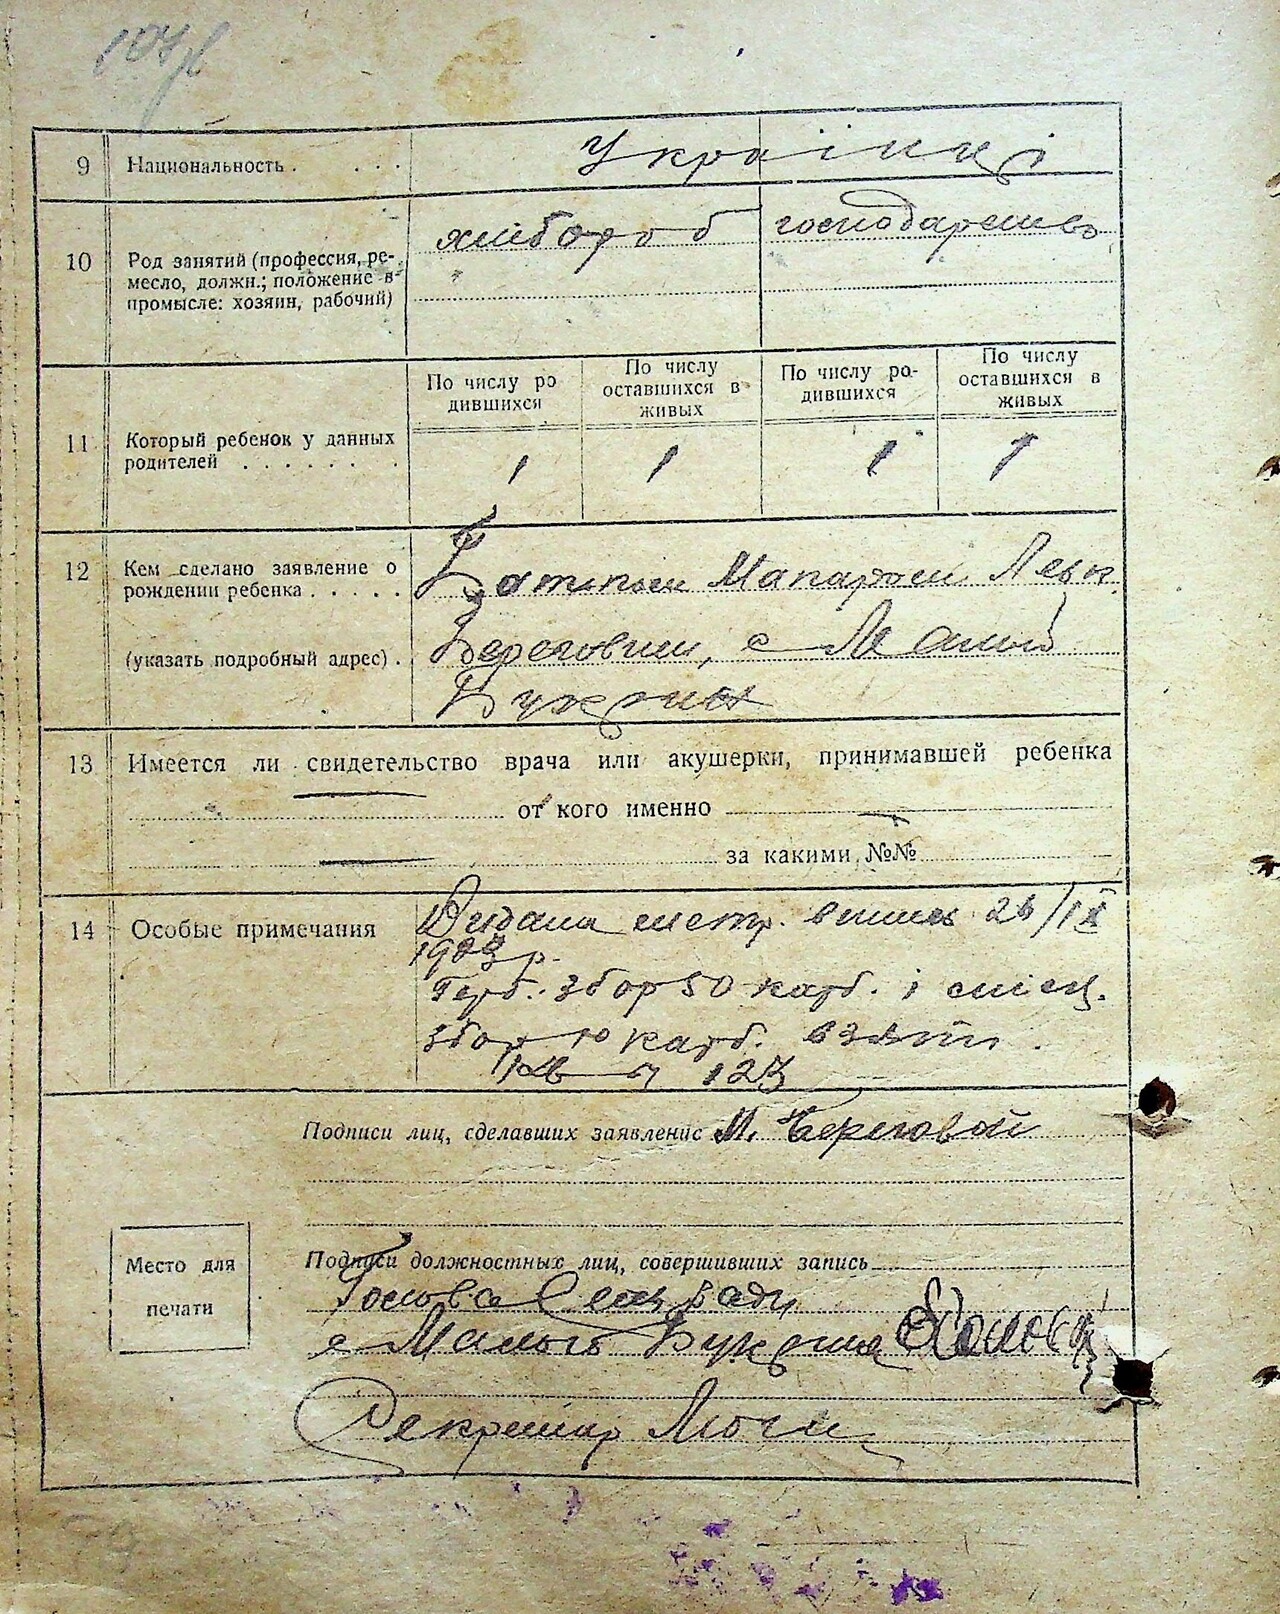 104
9 Национальность . . . . Українці
10 Род занятий (профессия, ре-
месло, должн.; положение в
промысле: хозяин, рабочий)
хлібороб господарешвь
11 Который ребенок у данных
родителей . . . . . . .
По числу ро
дившихся
По числу
оставшихся в
живых
По числу ро-
дившихся
По числу
оставшихся в
живых
1 1 1 1
12 Кем сделано заявление о
рождении ребенка . . . . .
(указать подробный адрес) .
Батьком
Береговим, с Малый
Букрин
13 Имеется ли свидетельство врача или акушерки, принимавшей ребенка
от кого именно
за какими №№
14 Особые примечания
Видана метр. випис 26/IX
1923 р.
Герб. збор 50 карб. і місц.
збор 10 карб. взяти.
Кв 123
Подписи лиц, сделавших заявление М. Береговой
Подписи должностных лиц, совершивших запись
Голова Сельради
с Малый Букрин
Секретар
Место для
печати